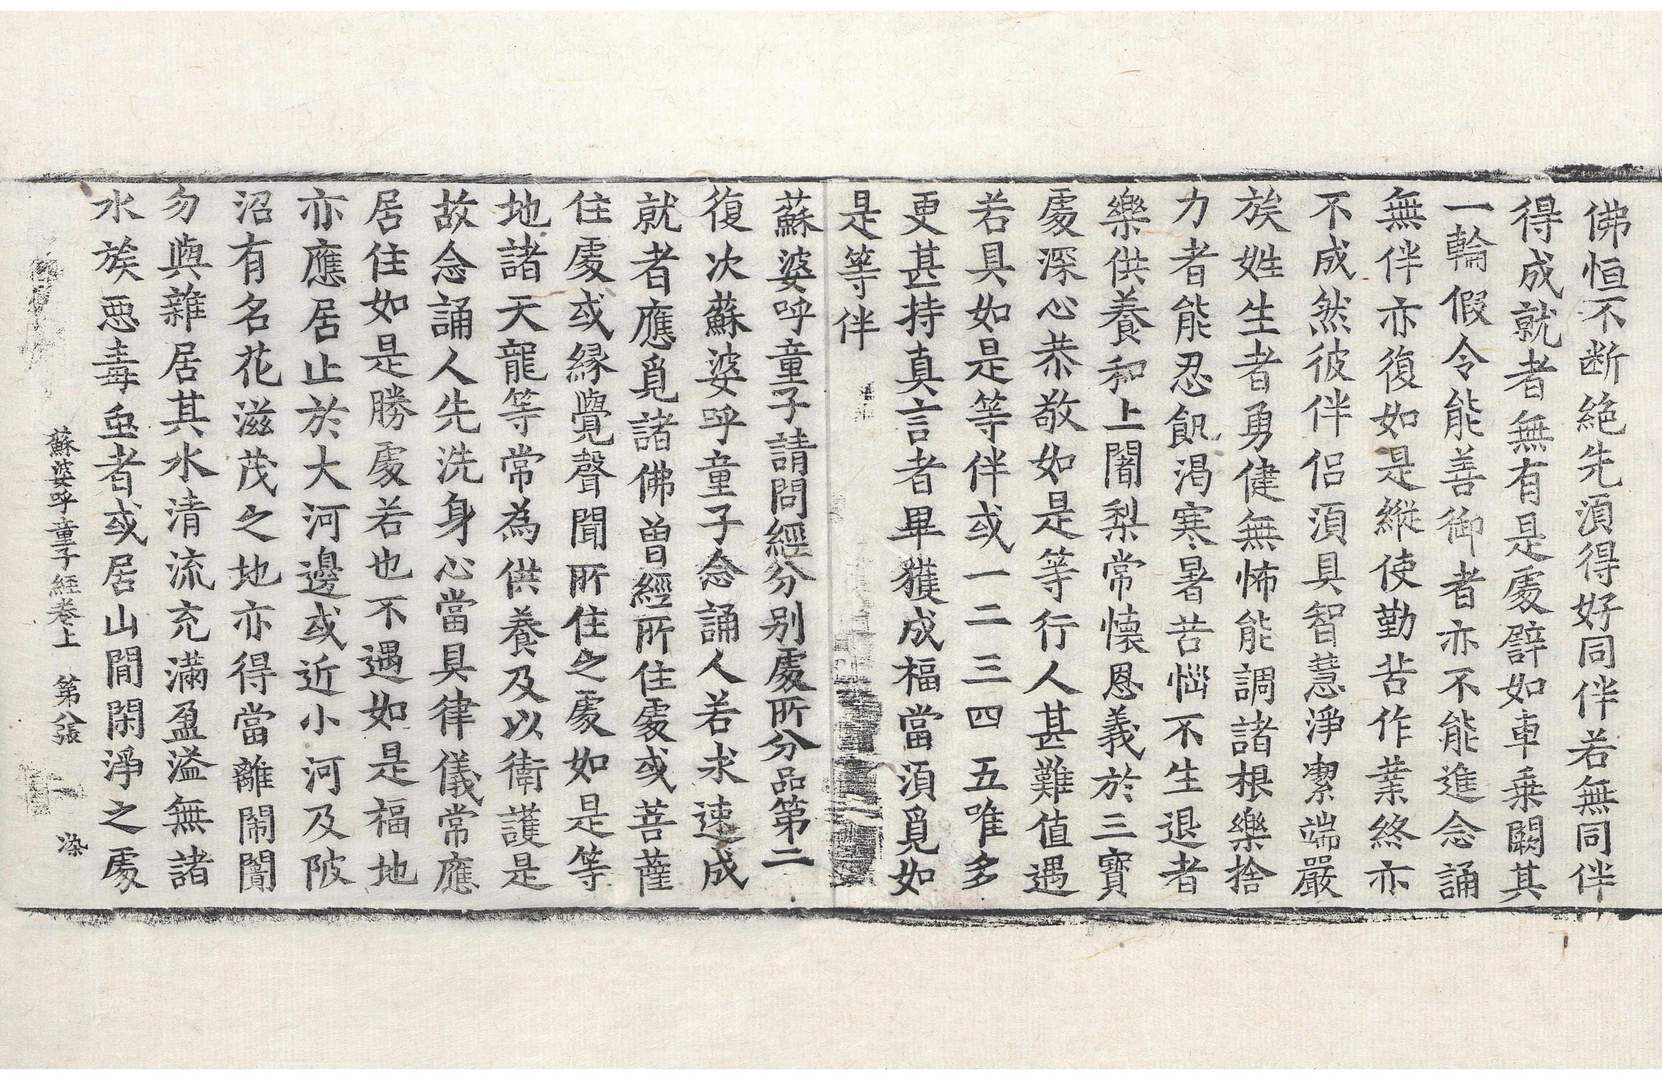 佛恒不断絶先湏得好同伴若無同伴
得成就者無有是處譬如車乗闕其
一輪假令能善御者亦不能進念誦
無伴亦復如是縱使勤苦作業終亦
不成然彼伴侣湏具智慧淨潔端嚴
族姓生者勇健無怖能調諸根樂捨
力者能忍飢渴寒暑苦惱不生退者
樂供養和上闍梨常懐恩義於三寶
處深心恭敬如是等行人甚難值遇
若具如是等伴或一二三四五唯多
更甚持真言者畢獲成福當湏覓如
是等伴
蘇婆呼童子請問經分别處所分品第二
復次蘇婆呼童子念誦人若求速成
就者應覓諸佛曽經所住處或菩薩
住處或縁覺聲聞所住之處如是等
地諸天龍等常為供養及以衛護是
故念誦人先洗身心當具律儀常應
居住如是勝處若也不遇如是福地
亦應居止於大河邊或近小河及陂
沼有名花滋茂之地亦得當離鬧闠
勿與雜居其水清流充滿盈溢無諸
水族惡毒虫者或居山間閑淨之處
蘇婆呼童子經卷上 第八張 染